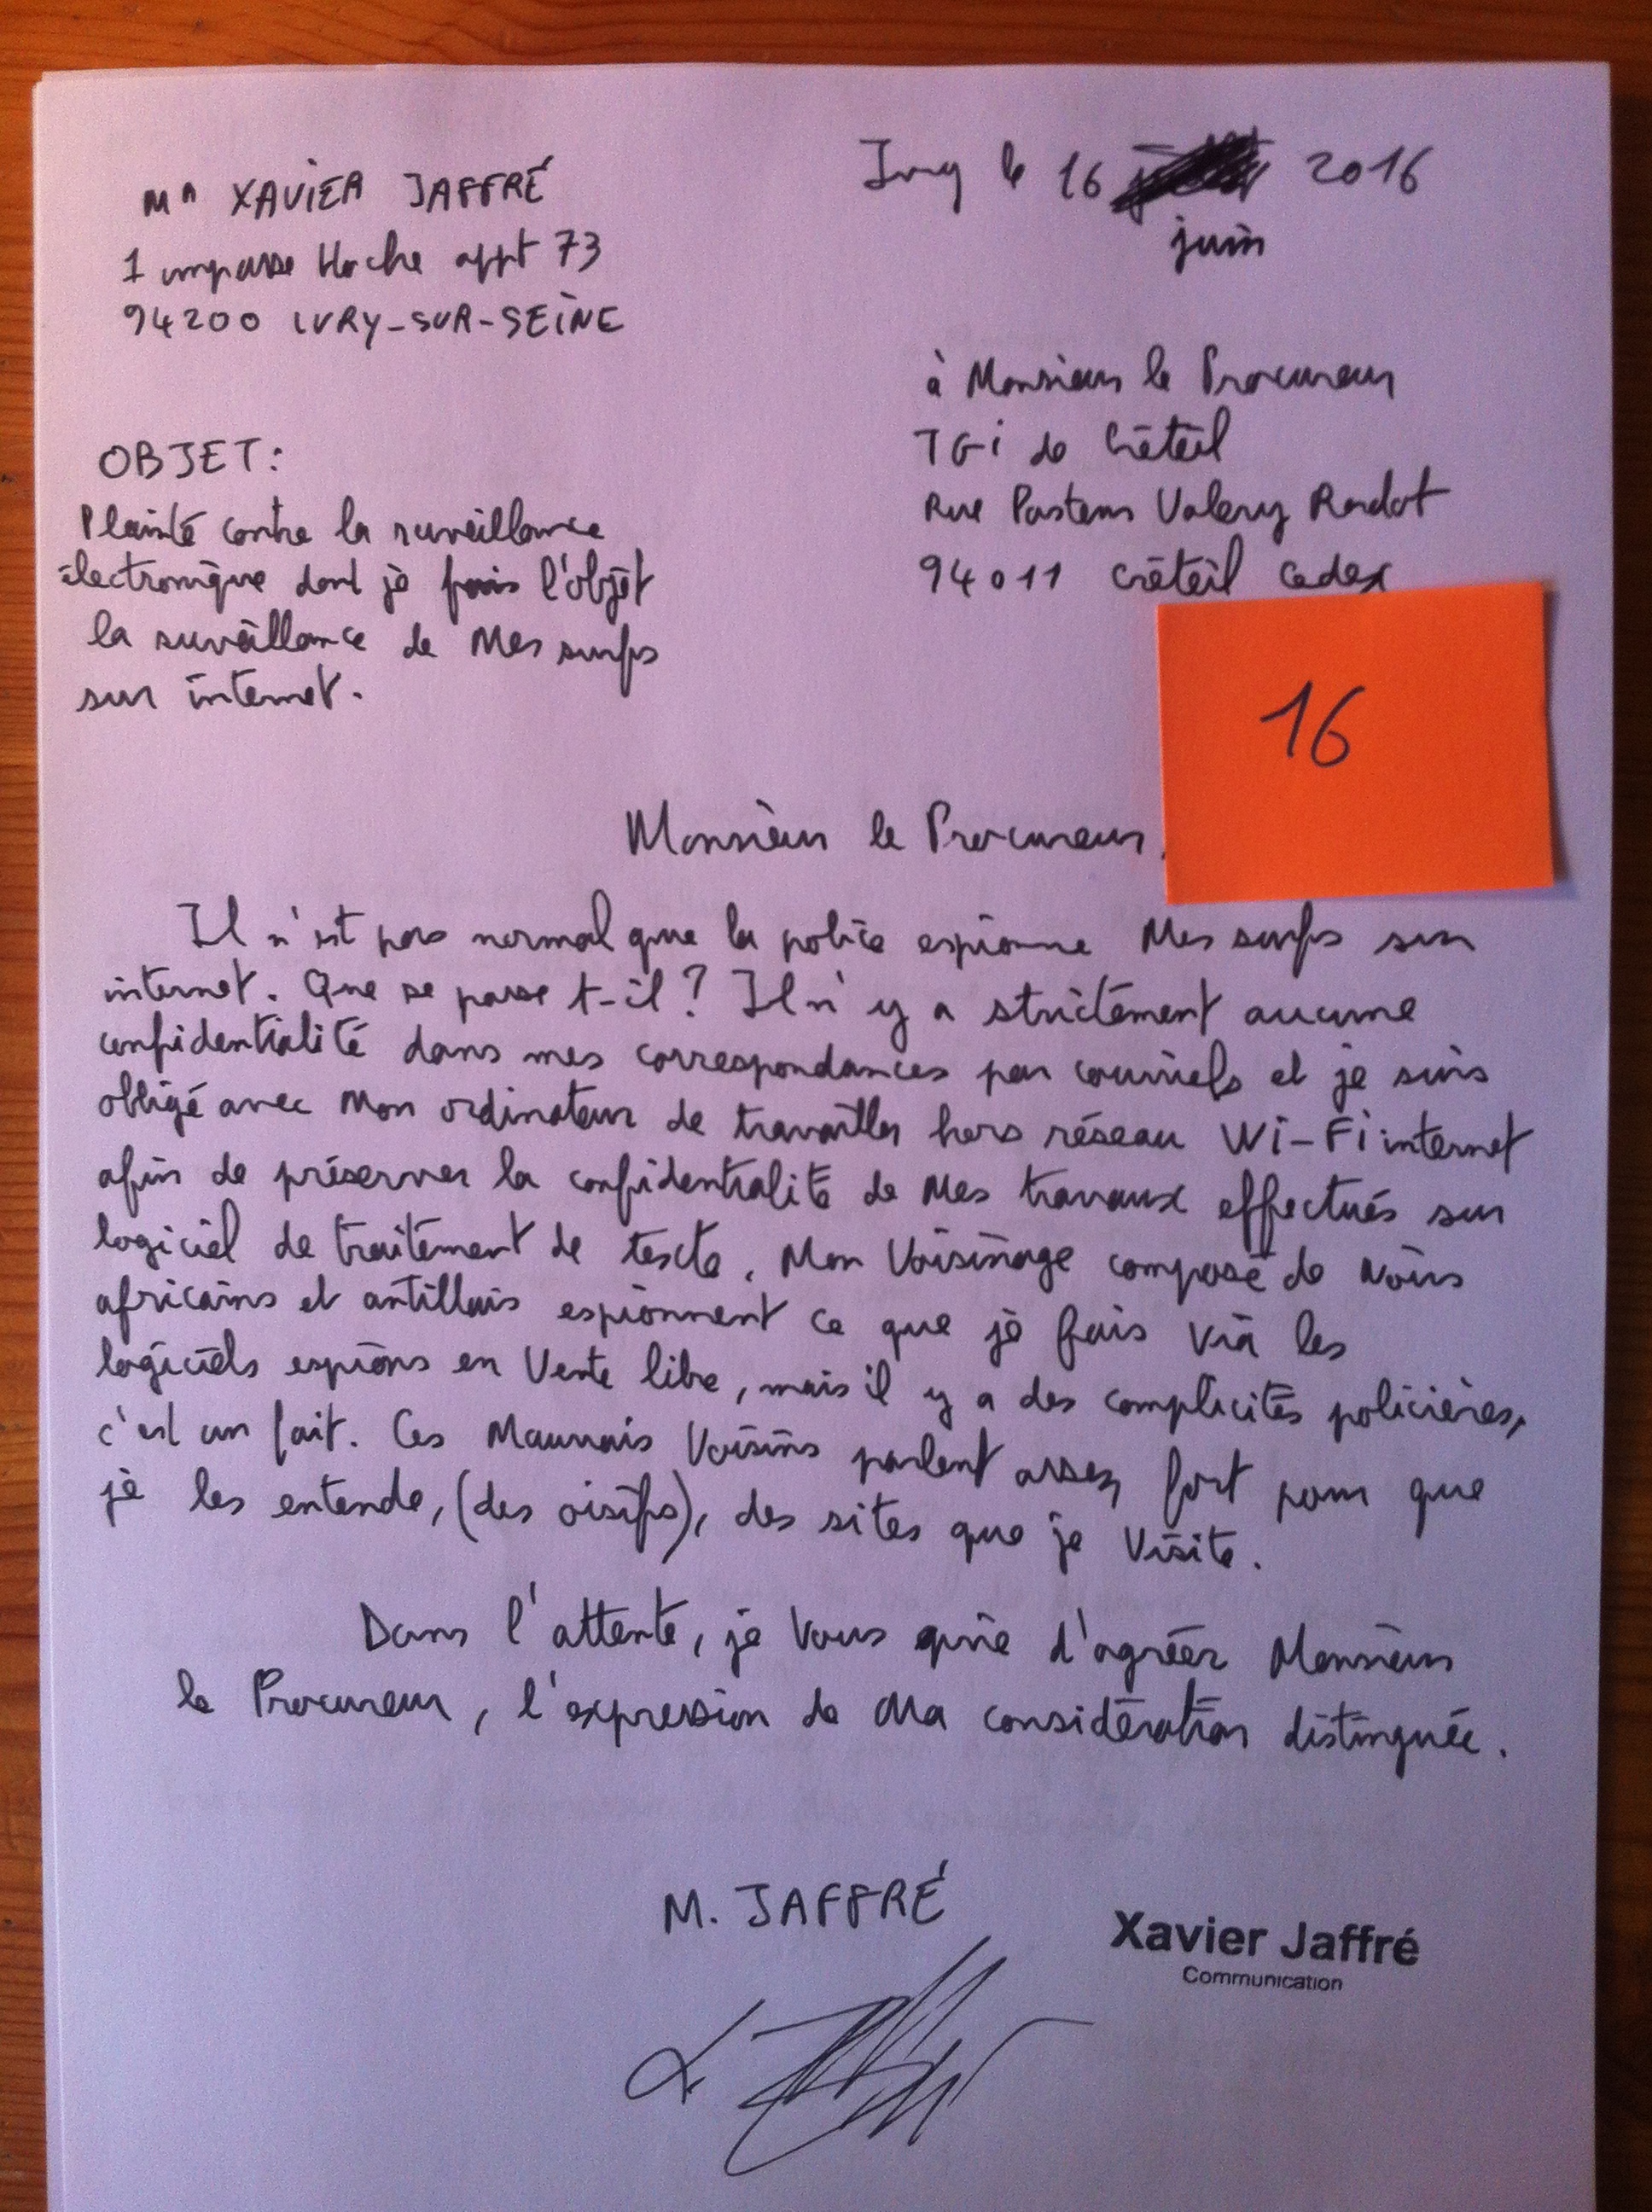 Mr XAVIER JAFFRÉ
1 impasse Hoche appt 73
94200 IVRY-SUR-SEINE
Ivry le 16 2016
juin
à Monsieur le Procureur
TGI de Créteil
Rue Pasteur Valery Radot
94011 Créteil Cedex
OBJET:
Plainte contre la surveillance
électronique dont je fais l'objet
la surveillance de Mes surfs
sur internet.
16
Monsieur le Procureur,
Il n'est pas normal que la police espionne Mes surfs sur
internet. Que se passe t-il? Il n'y a strictement aucune
confidentialité dans mes correspondances par courriels et je suis
obligé avec Mon ordinateur de travailler hors réseau Wi-Fi internet
afin de préserver la confidentialité de Mes travaux effectués sur
logiciel de traitement de texte. Mon Voisinage composé de Noirs
africains et antillais espionnent ce que je fais via les
logiciels espions en Vente libre, mais il y a des complicités policières,
c'est un fait. Ces Mauvais Voisins parlent assez fort pour que
je les entende, (des oisifs), des sites que je Visite.
Dans l'attente, je Vous prie d'agréer Monsieur
le Procureur, l'expression de Ma considération distinguée.
M. JAFFRÉ
Xavier Jaffré
Communication